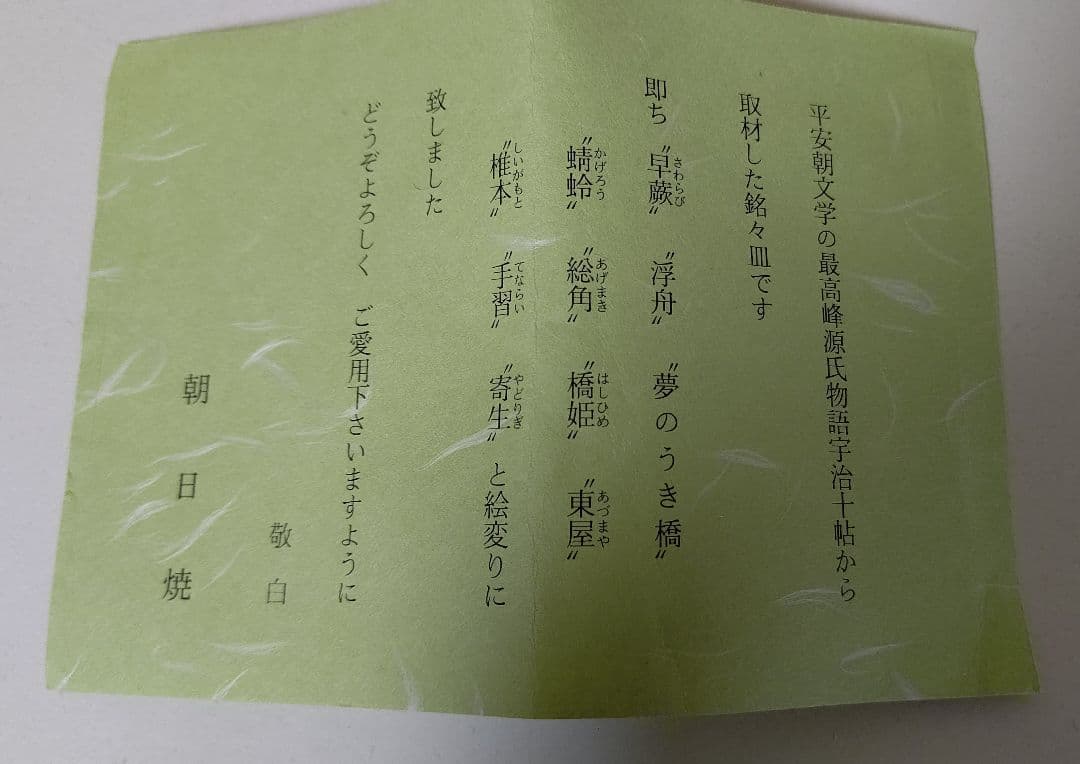 平安朝文学の最高峰源氏物語宇治十帖から
取材した銘々皿です
即ち〝早蕨〟 〝浮舟〟 〝夢のうき橋〟
さわらび
〝蜻蛉〟 〝総角〟 〝橋姫〟 〝東屋〟
かげろう あげまき はしひめ あづまや
〝椎本〟 〝手習〟 〝寄生〟と絵変りに
しいがもと てならい やどりぎ
致しました
どうぞよろしく ご愛用下さいますように
敬白
朝日焼